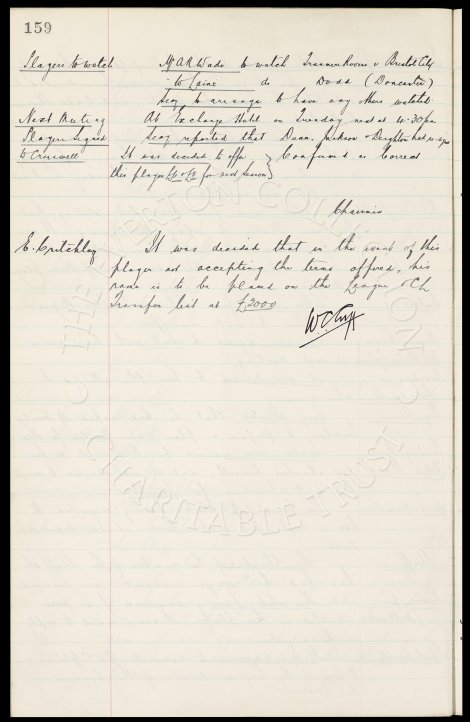 159
Players to watch Mr A.R. Wade to watch Tranmere Rovers v Bristol City
to Laine do Dodd (Doncaster)
Secy to arrange to have any others watched
Next Meeting At Exchange Hotel on Tuesday next at 4.30pm
Players Signed Secy reported that Dunn, Jackson & Deighton had re-sign
W Cresswell It was decided to offer Confirmed as Correct
this player £6 & £8 for next season
Chairman
E. Critchley It was decided that in the event of this
player not accepting the terms offered, his
name is to be placed on the League & Ch
Transfer list at £2000
W.C. Cuff
THE EVERTON COLLECTION
CHARITABLE TRUST